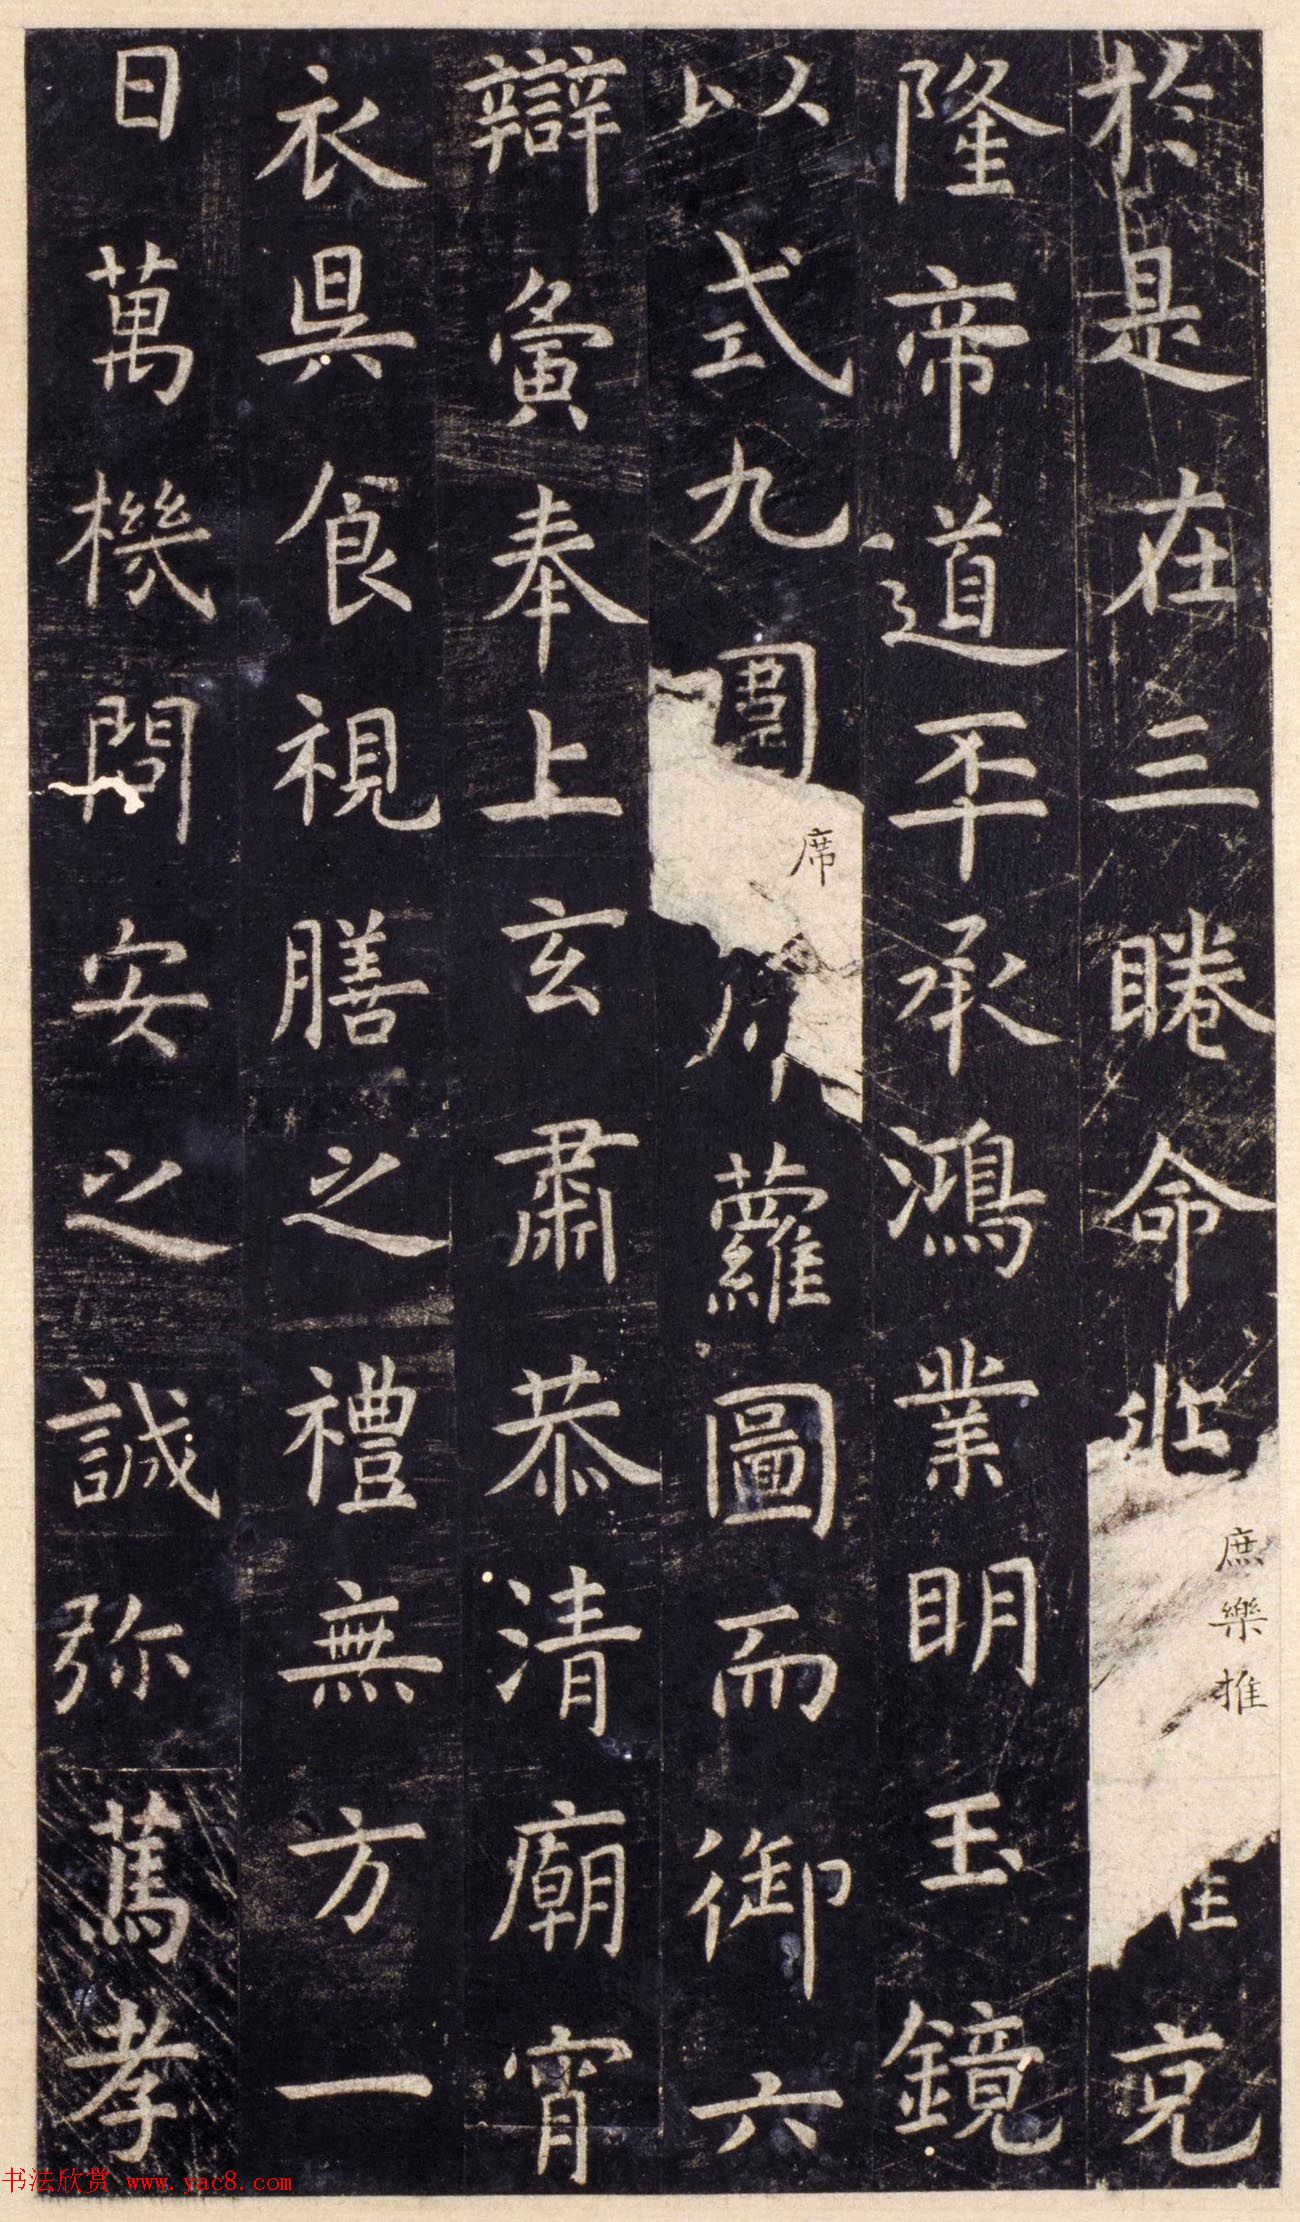 於是在三睠命兆庶樂推克
隆帝道丕承鴻業明玉鏡
以式九圍席蘿圖而御六
辯夤奉上玄肅恭清廟宵
衣具食視膳之禮無方一
日萬機問安之誠弥篤孝
书法欣赏 www.yac8.com